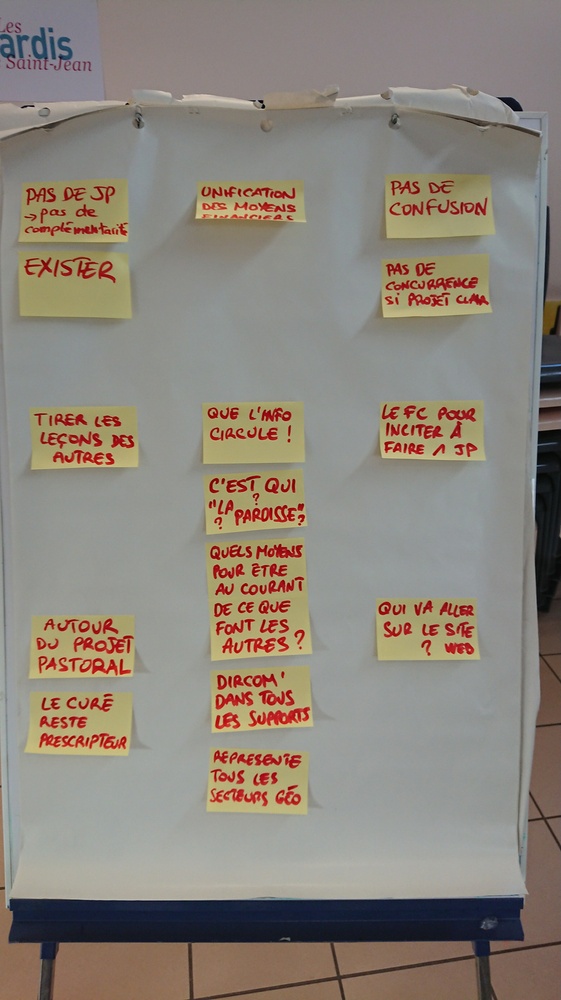 Les
ardis
Saint-Jean
PAS DE JP
→ pas de
complémentarité
EXISTER
UNIFICATION
DES MOYENS
FINANCIERS
PAS DE
CONFUSION
PAS DE
CONCURRENCE
SI PROJET CLAIR
TIRER LES
LEÇONS DES
AUTRES
QUE L'INFO
CIRCULE !
C'EST QUI
?
"LA PAROISSE"
? ?
QUELS MOYENS
POUR ÊTRE
AU COURANT
DE CE QUE
FONT LES
AUTRES ?
DIRCOM'
DANS TOUS
LES SUPPORTS
REPRESENTE
TOUS LES
SECTEURS GÉO
LE FC POUR
INCITER À
FAIRE 1 JP
AUTOUR
DU PROJET
PASTORAL
LE CURÉ
RESTE
PRESCRIPTEUR
QUI VA ALLER
SUR LE SITE
? WEB